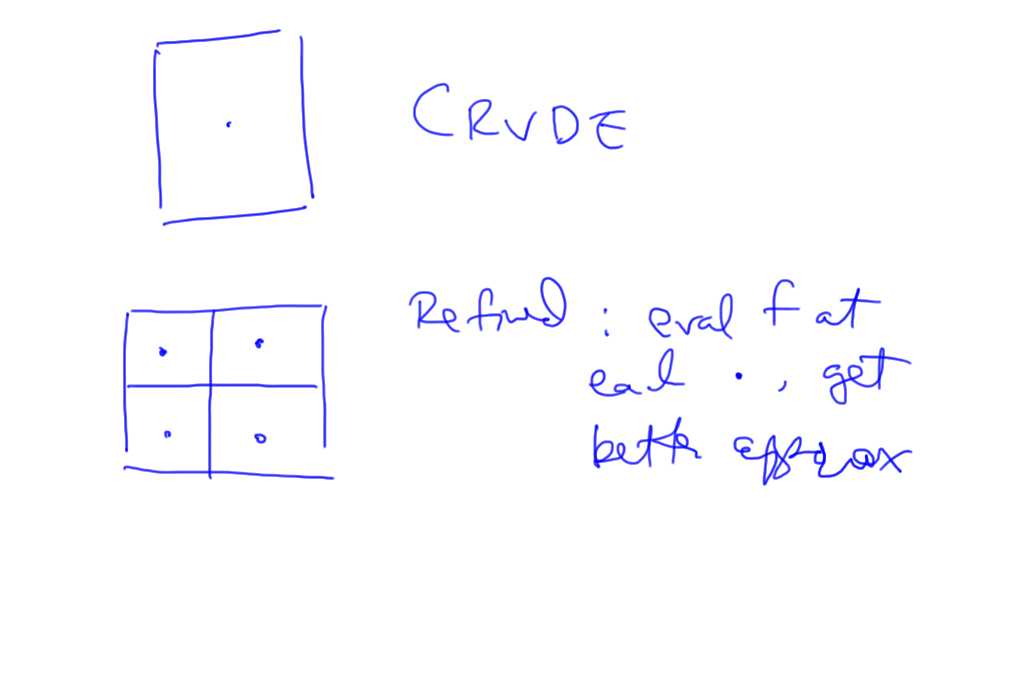 CRUDE
Refined : eval f at
each • , get
better approx